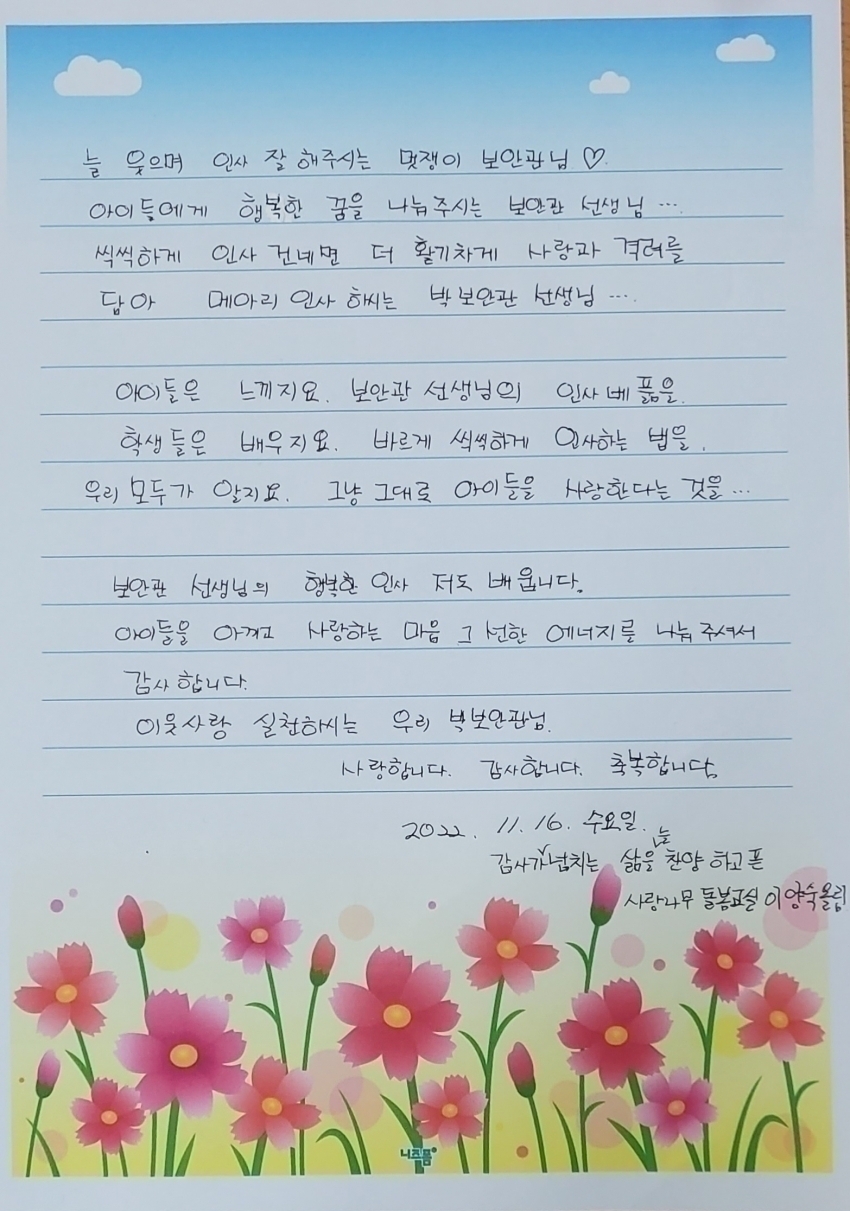 늘 웃으며 인사 잘 해주시는 멋쟁이 보안관님 ♡.
아이들에게 행복한 꿈을 나눠주시는 보안관 선생님 …
씩씩하게 인사 건네면 더 활기차게 사랑과 격려를
담아 메아리 인사 하시는 박보안관 선생님 ….
아이들은 느끼지요. 보안관 선생님의 인사 베풂을.
학생들은 배우지요. 바르게 씩씩하게 인사하는 법을.
우리 모두가 알지요. 그냥 그대로 아이들을 사랑한다는 것을…
보안관 선생님의 행복한 인사 저도 배웁니다.
아이들을 아끼고 사랑하는 마음 그 선한 에너지를 나눠 주셔서
감사합니다.
이웃사랑 실천하시는 우리 박보안관님.
사랑합니다. 감사합니다. 축복합니다.
2022. 11. 16. 수요일.
감사가 넘치는 삶을 늘 찬양 하고픈
사랑나무 돌봄교실 이양숙올림
니즈폼